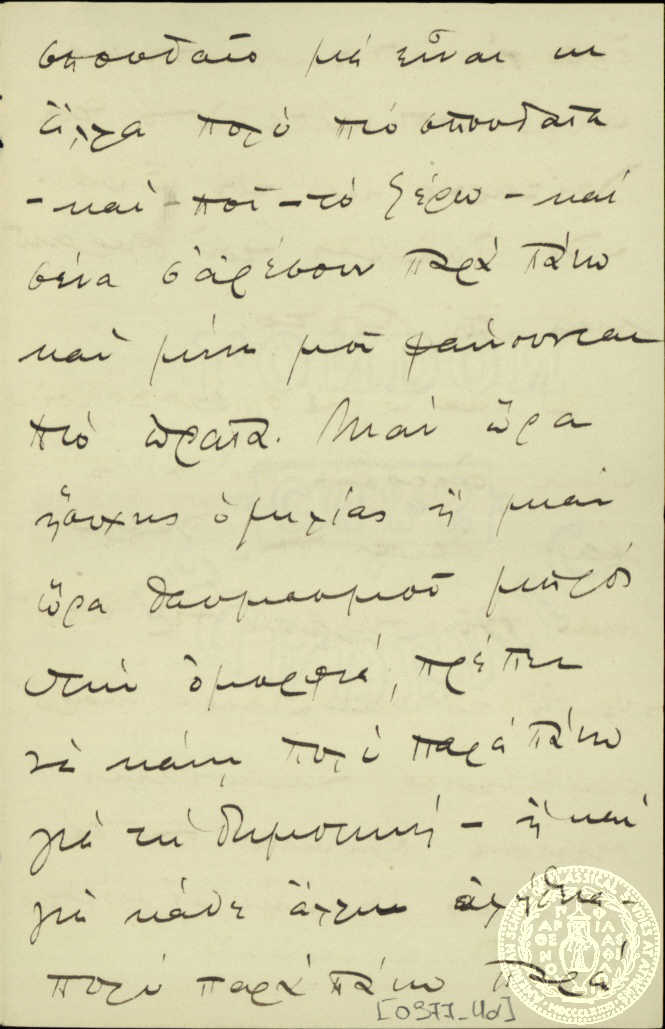 σπουδαῖο μὰ εἶναι κι
ἄλλα πολὺ πιὸ σπουδαῖα
- καὶ - ποῦ - τὸ ξέρω - καὶ
σένα σ' ἀρέσουν παρὰ πάνω
καὶ μένα μοῦ φαίνουνται
πιὸ ὡραῖα. Μιὰν ὥρα
ἥσυχης ὁμιλίας ἢ μιὰν
ὥρα θαυμασμοῦ μπρὸς
στὴν ὀμορφιά, πρέπει
νὰ κάνῃ πολὺ παρὰ πάνω
γιὰ τὴ δημοτικὴ - ἢ καὶ
γιὰ κάθε ἄλλην ἀλήθεια -
πολὺ παρὰ πάνω παρὰ
[0377_4d]